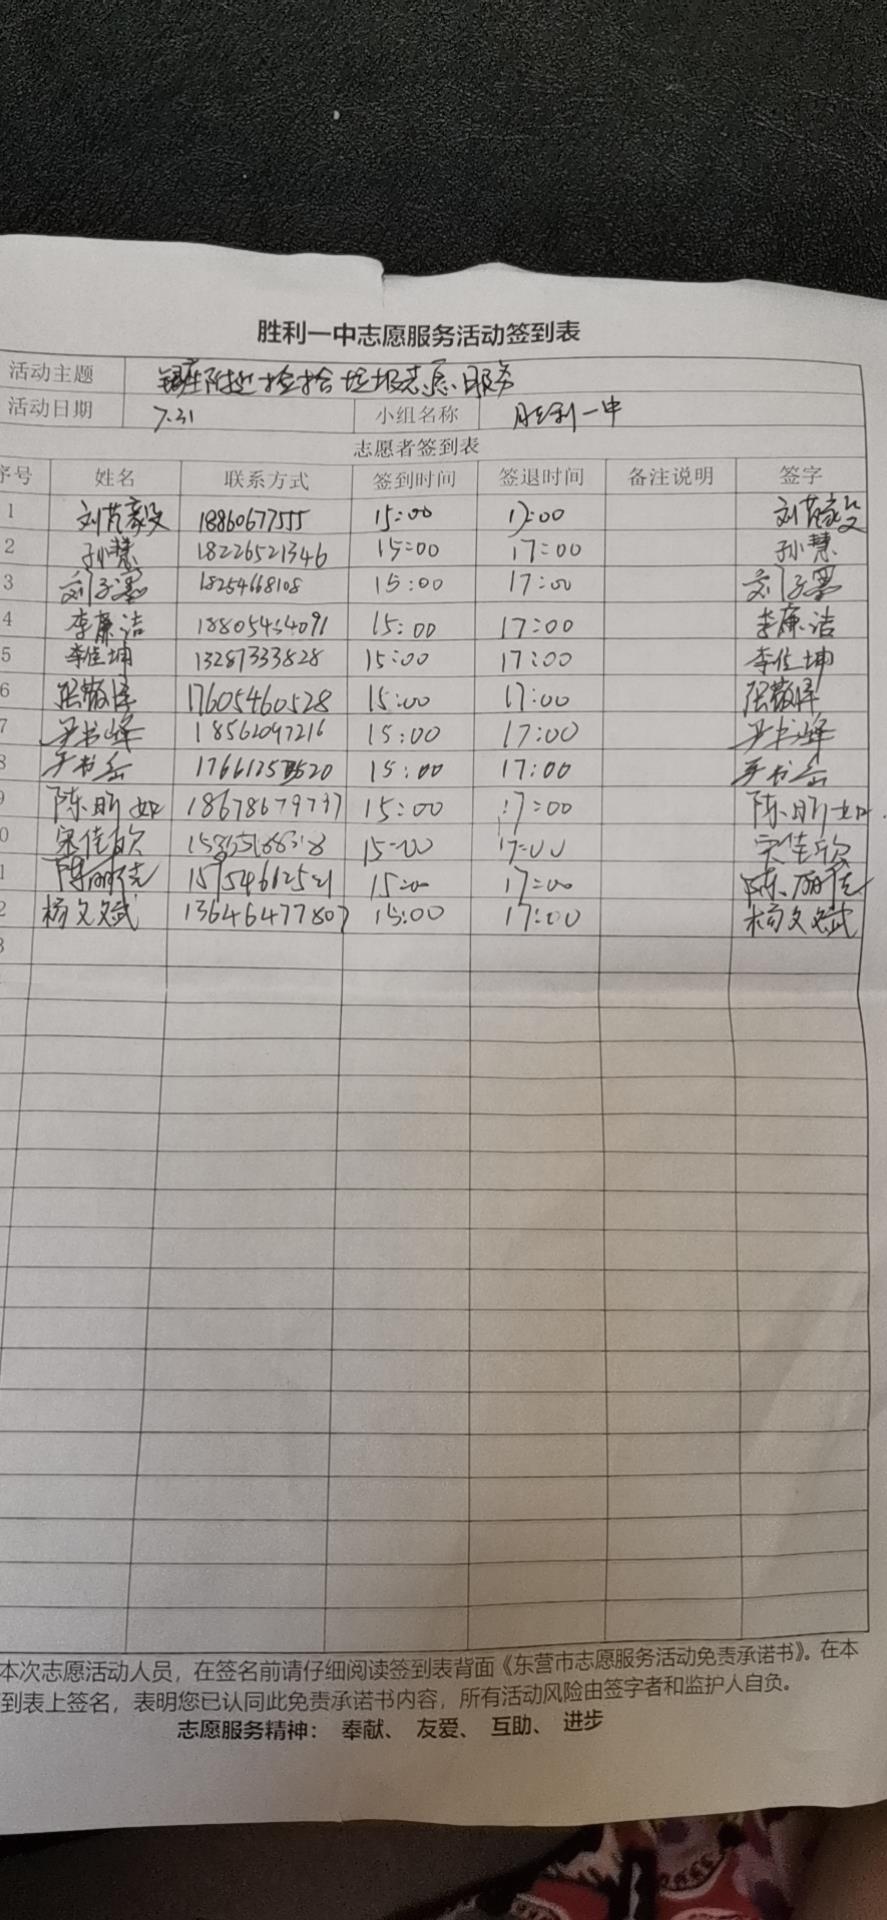 胜利一中志愿服务活动签到表
活动主题 附近捡拾垃圾志愿服务
活动日期 7.31 小组名称 胜利一中
志愿者签到表
序号 姓名 联系方式 签到时间 签退时间 备注说明 签字
1 刘芮毅 18860677555 15:00 17:00 刘芮毅
2 孙慧 18226521346 15:00 17:00 孙慧
3 刘子墨 18254668108 15:00 17:00 刘子墨
4 李廉洁 18805454091 15:00 17:00 李廉洁
5 李佳坤 13287333828 15:00 17:00 李佳坤
6 张敬泽 17605460528 15:00 17:00 张敬泽
7 尹书峰 18562097216 15:00 17:00 尹书峰
8 尹书岳 15:00 17:00 尹书岳
9 陈昕如 18678679737 15:00 17:00 陈昕如
0 宋佳欣 15:00 17:00 宋佳欣
1 陈丽佳 15954612521 15:00 17:00 陈丽佳
2 杨文斌 13646477807 15:00 17:00 杨文斌
3
本次志愿活动人员，在签名前请仔细阅读签到表背面《东营市志愿服务活动免责承诺书》。在本
到表上签名，表明您已认同此免责承诺书内容，所有活动风险由签字者和监护人自负。
志愿服务精神： 奉献、 友爱、 互助、 进步